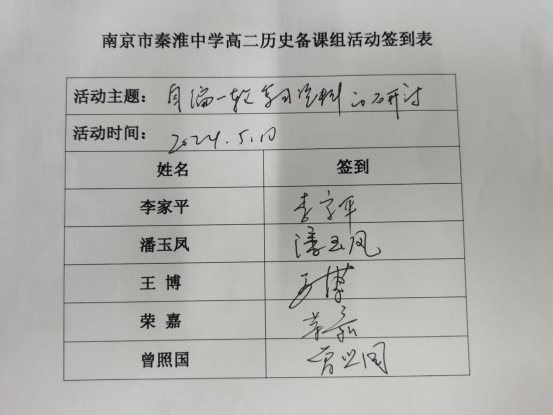 南京市秦淮中学高二历史备课组活动签到表
活动主题： 自编一轮复习资料的研讨
活动时间： 2024.5.10
姓名 签到
李家平 李家平
潘玉凤 潘玉凤
王 博 王博
荣 嘉 荣嘉
曾照国 曾照国